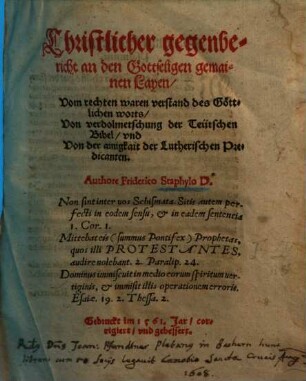 Christlicher gegenbe-
richt an den Gottseligen gemai-
nen Layen/
Vom rechten waren verstand des Gött-
lichen worts/
Von verdolmetschung der Teütschen
Bibel/ vnd
Von der ainigkait der Lutherischen Pre-
dicanten.
Authore Friderico Staphylo D.
Non sint inter vos Schismata. Sitis autem per-
fecti in eodem sensu, & in eadem sententia
1. Cor. 1.
Mittebat eis (summus Pontifex) Prophetas,
quos illi PROTESTANTES,
audire nolebant. 2. Paralip. 24.
Dominus immiscuit in medio eorum spiritum ver-
tiginis, & immisit illis operationem erroris.
Esaie. 19. 2. Thessa. 2.
Gedruckt im 1561. Jar/ cor-
rigiert/ vnd gebessert.
Dns Joann:
1608.